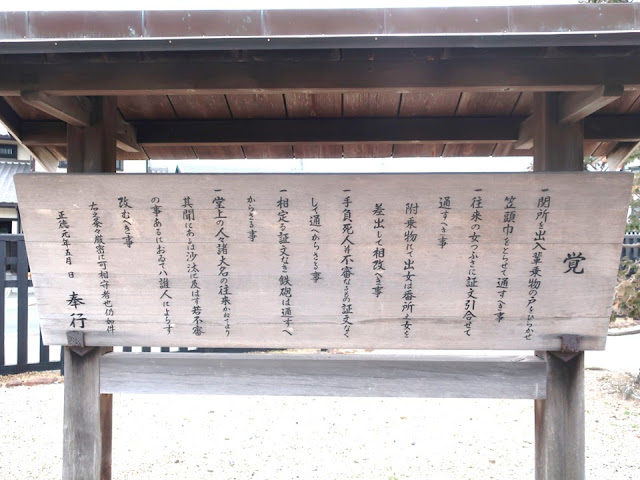 覚
一関所を出入輩乗物の戸をひらかせ
笠頭巾をとらせて通すへき事
一往来の女つふさに証文引合せて
通すへき事
附乗物にて出女は番所の女を
差出して相改へき事
一手負死人并不審なるもの証文なく
して通へからさる事
一相定る証文なき鉄砲は通すへ
からさる事
一堂上の人々諸大名の往来かねてより
其聞にあるは沙汰に及はす若不審
の事あるにおゐてハ誰人によらす
改むへき事
右之条々厳密に可相守者也仍如件
正徳元年五月 日 奉行